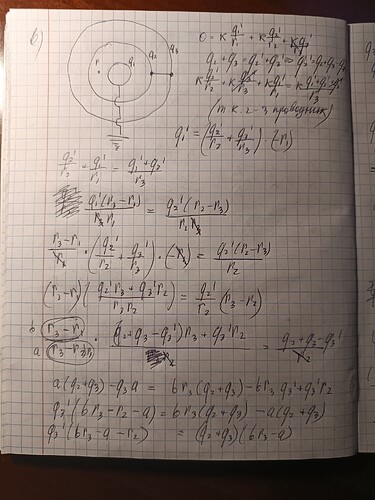 б)
r₁ q₁ q₂ q₃
0 = K q₁'/r₁ + K q₂'/r₂ + K q₃'/r₃
q₂ + q₃ = q₂' + q₃'
K q₂'/r₂ + K q₃'/r₃ + K q₁'/r₁ =
(т.к. 2-3 проводник)
q₁' = (q₂'/r₂ + q₃'/r₃) · (-r₁)
q₂'/r₂ + q₁'/r₁ = (q₁' + q₂')/r₃
q₁'(r₃ - r₁)/(r₃ r₁) = q₂'(r₂ - r₃)/(r₂ r₃)
(r₃ - r₁)/r₁ · (q₂'/r₂ + q₃'/r₃) · (-r₁) = q₂'(r₂ - r₃)/r₂
(r₃ - r₁) (q₂' r₃ + q₃' r₂)/(r₃ r₂) = q₂'/r₂ (r₃ - r₂)
b (r₃ - r₁) · (q₂ + q₃ - q₃') r₃ + q₃' r₂ = q₂ + q₃ - q₃'
a (r₃ - r₂) r₃
a(q₂ + q₃) - q₃' a = b r₃ (q₂ + q₃) - b r₃ q₃' + q₃' r₂
q₃' (b r₃ - r₂ - a) = b r₃ (q₂ + q₃) - a (q₂ + q₃)
q₃' (b r₃ - a - r₂) = (q₂ + q₃) (b r₃ - a)